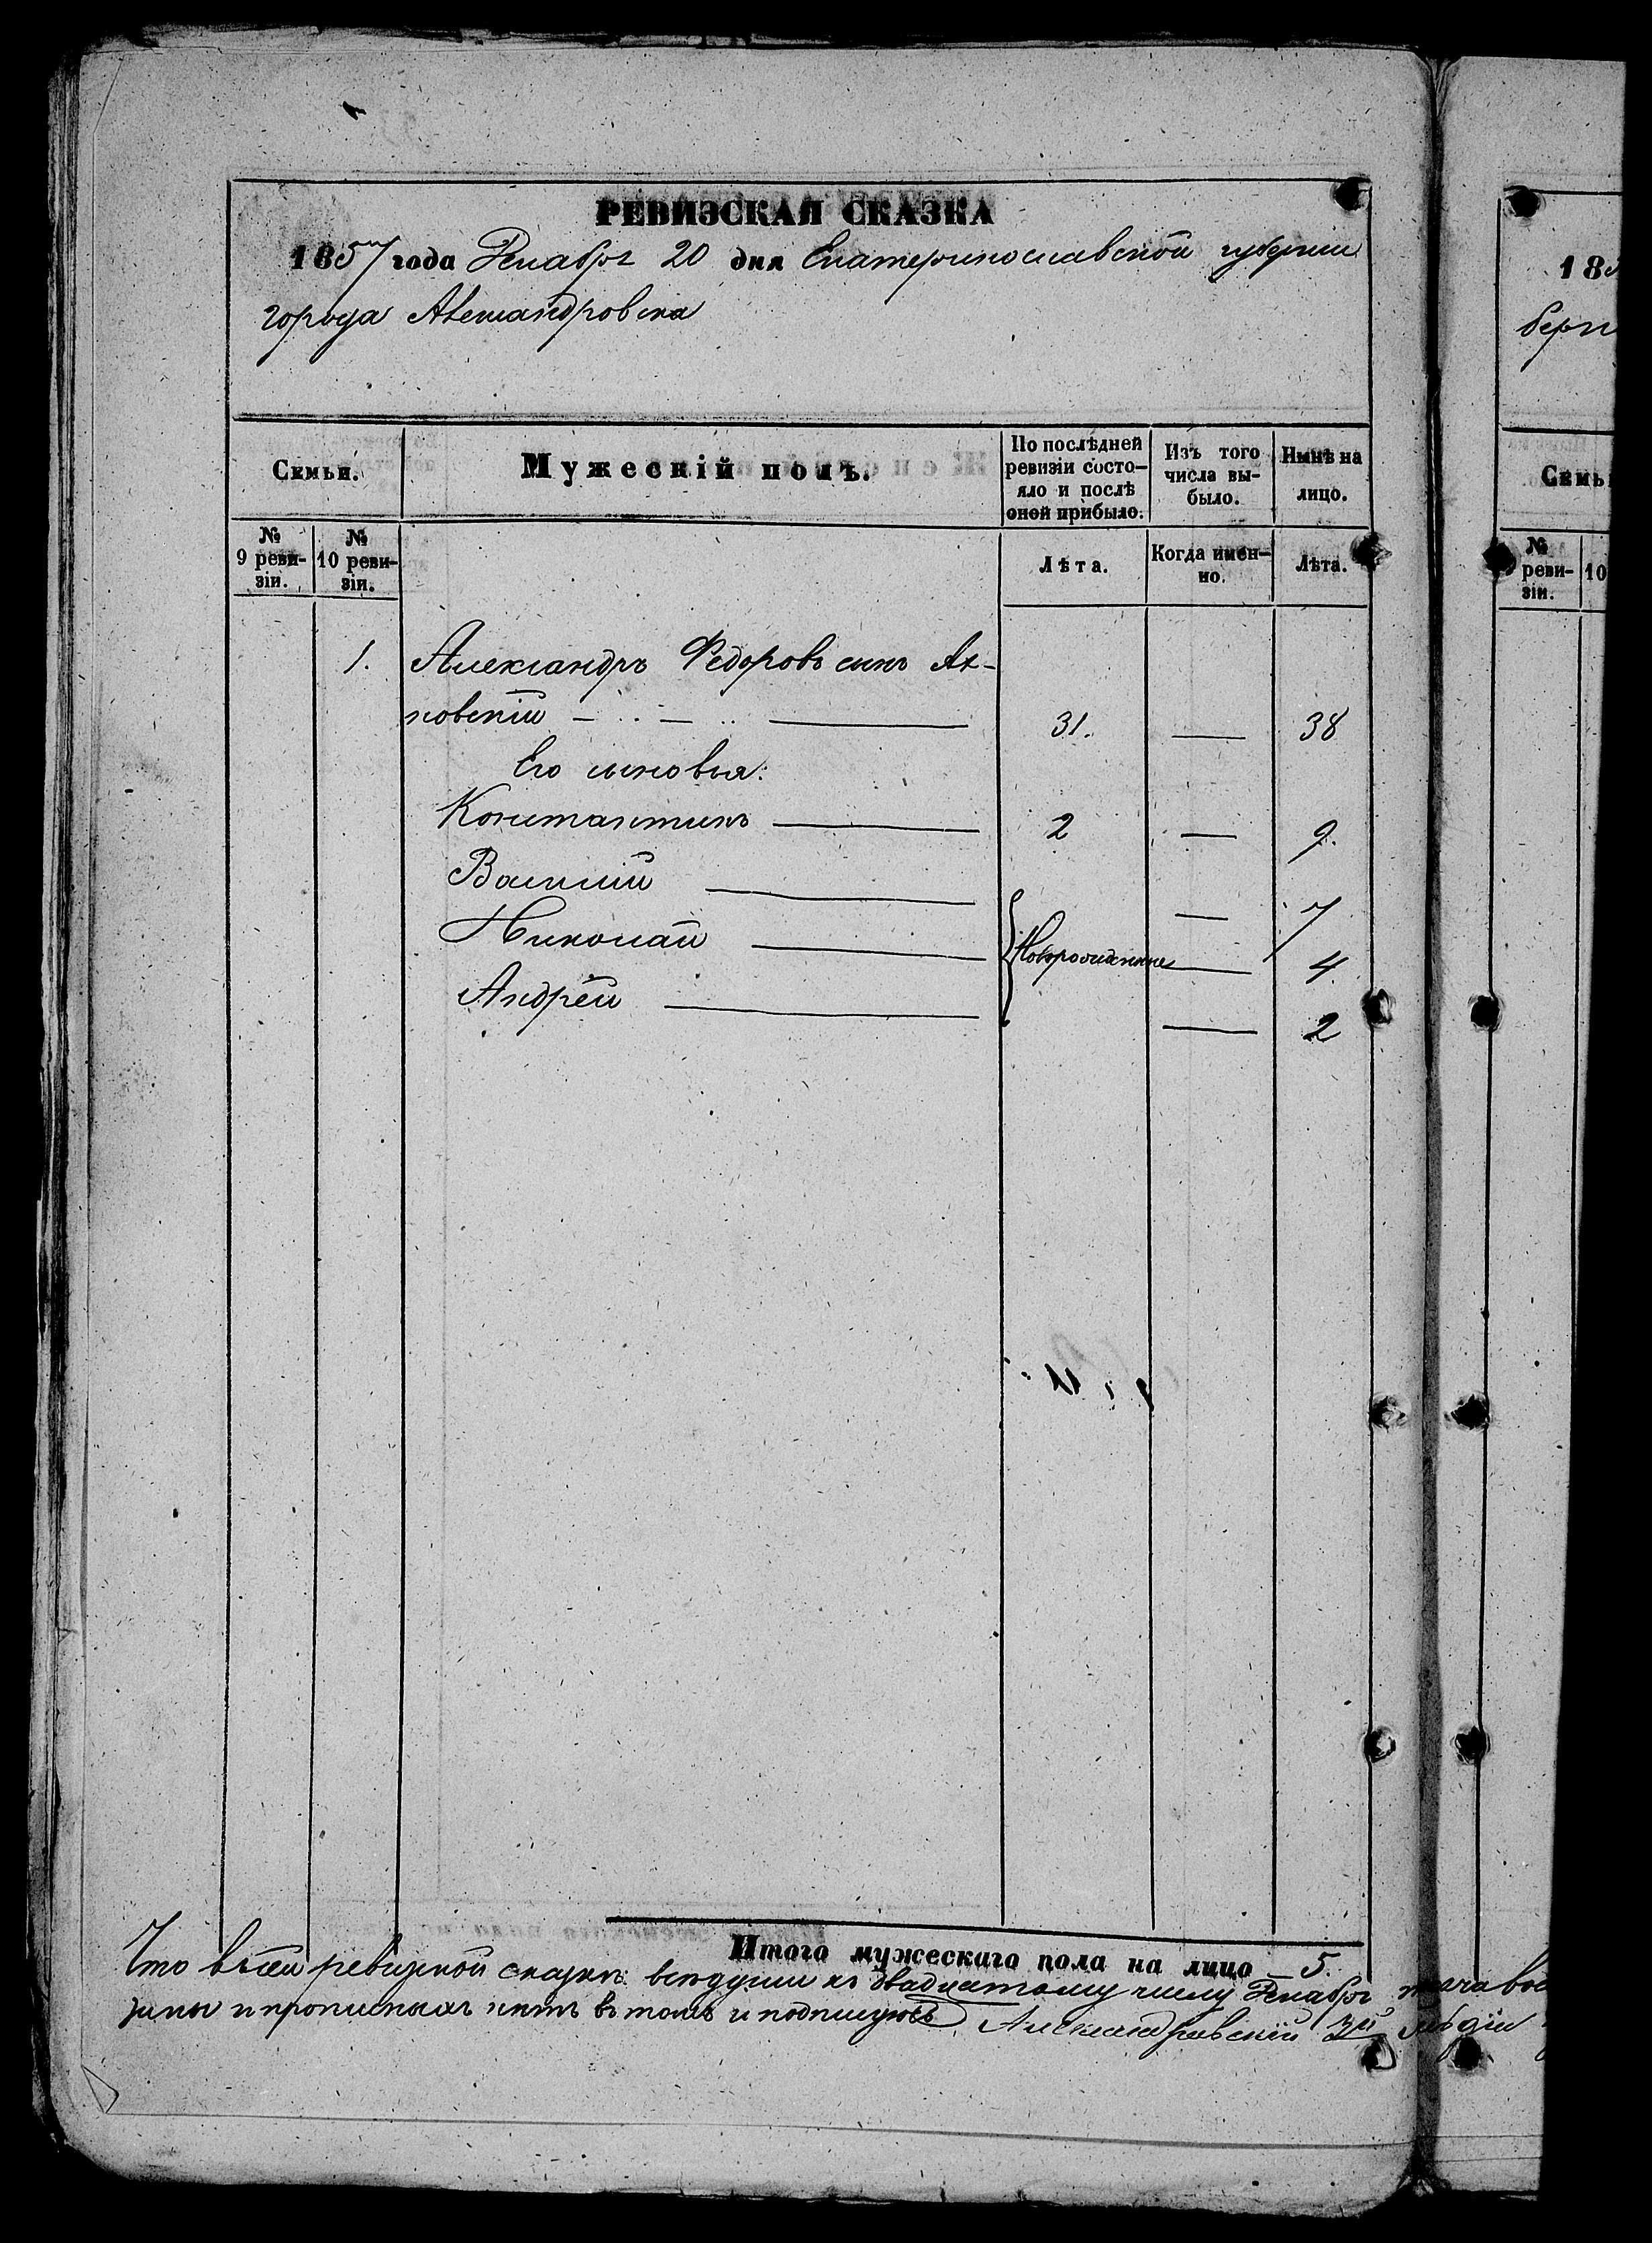 РЕВИЗСКАЯ СКАЗКА
1857 года Декабря 20 дня Екатеринославской губернии
города Александровска
Семьи.
Мужескій полъ.
По послѣдней
ревизіи состо-
яло и послѣ
оной прибыло.
Изъ того
числа вы-
было.
Нынѣ на
лицо.
№
9 реви-
зіи.
№
10 реви-
зіи.
Лѣта.
Когда имен-
но.
Лѣта.
1. Александръ Федоровъ сынъ Ах-
новскій 31. 38
Его сыновья:
Константинъ 2 9.
Василій 7
Николай Новорожденные 4.
Андрей 2
Итого мужескаго пола на лицо 5.
Что въ сей ревизской сказкѣ всѣ души къ двадцатому числу Декабря
заны и прописныхъ нѣтъ въ томъ и подпишуюсь Александровскій 3й
185
Семь
№
реви-
зіи.
10